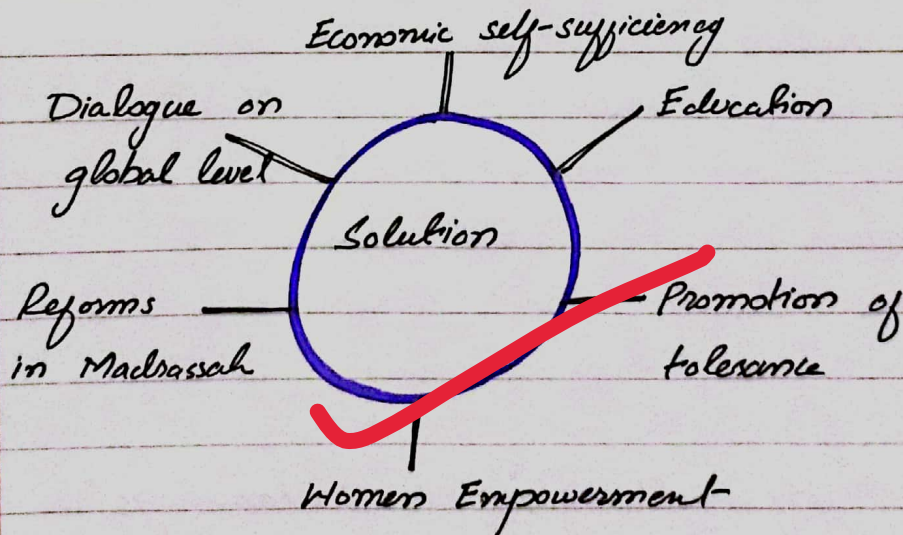 Economic self-sufficiency
Dialogue on
global level
Education
Solution
Reforms
in Madrassah
Promotion of
tolerance
Women Empowerment